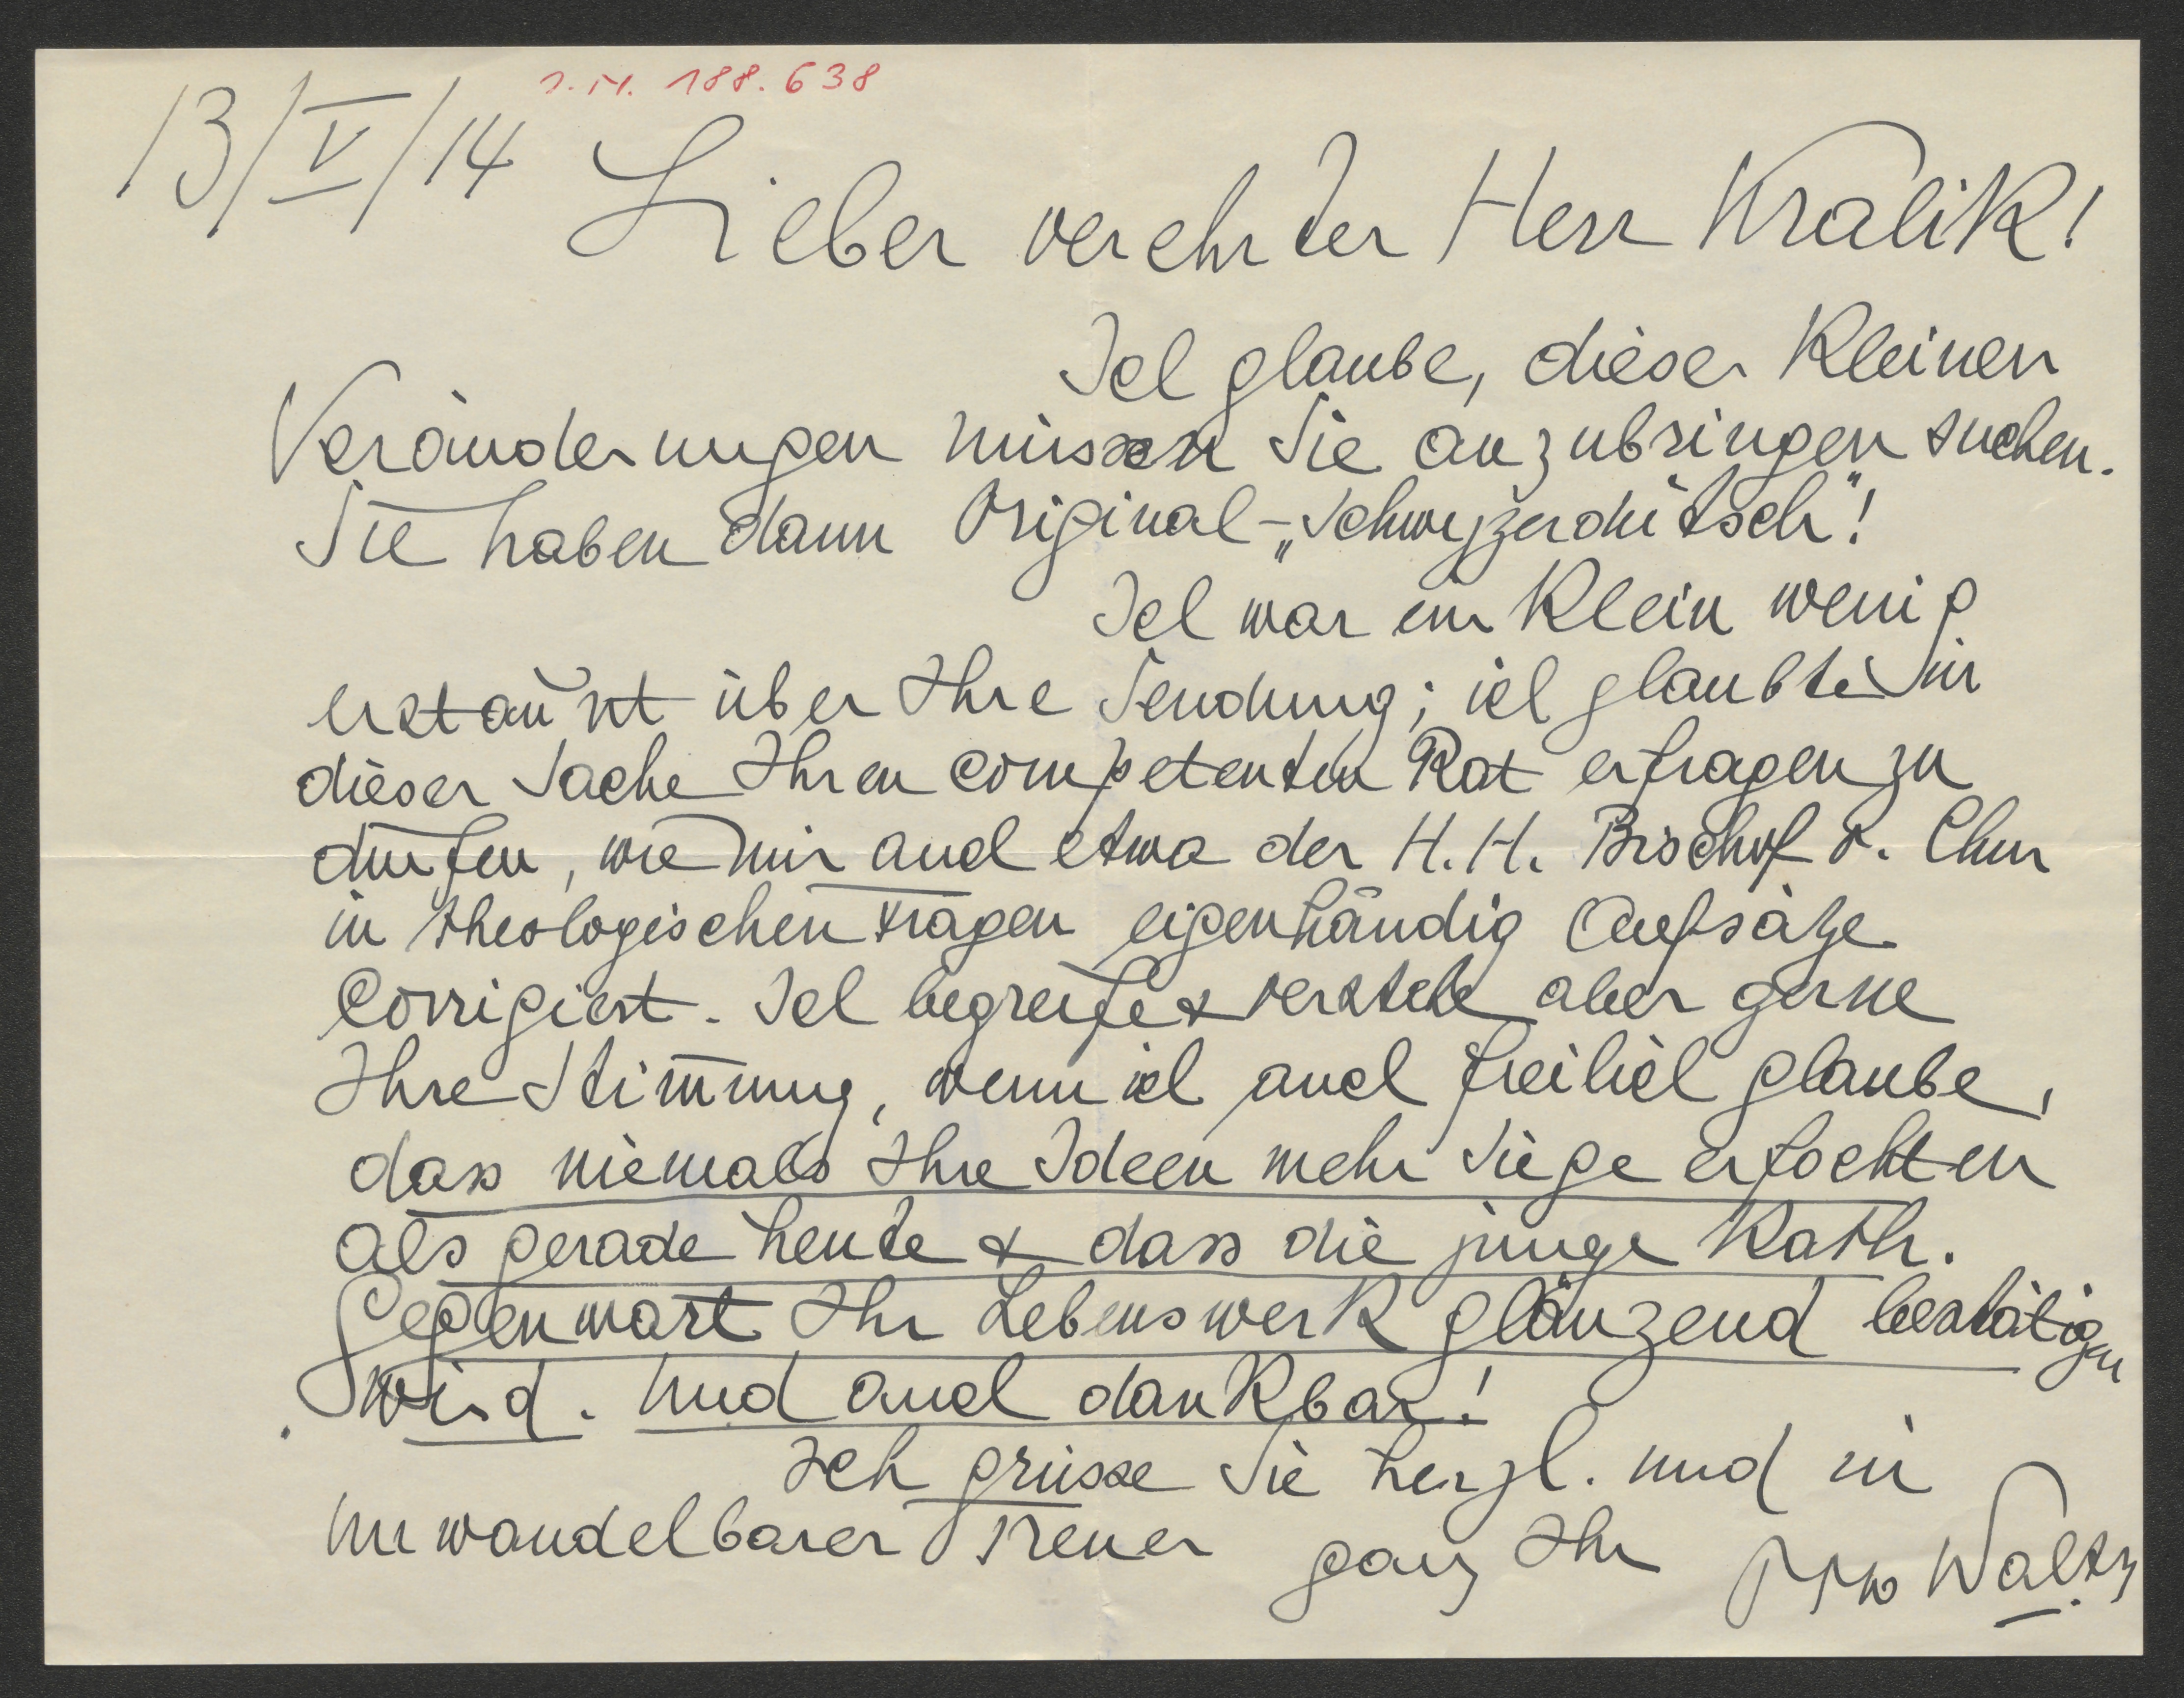 J.N. 188.638
13/V/14
Lieber verehrter Herr Kralik!
Ich glaube, diese kleinen
Veränderungen müssen Sie anzubringen suchen.
Sie haben dann Original-„Schwyzerdütsch"!
Ich war ein klein wenig
erstaunt über Ihre Sendung; ich glaubte in
dieser Sache Ihren competenten Rat erfragen zu
dürfen, wie mir auch etwa der H.H. Bischof v. Chur
in theologischen Fragen eigenhändig Aufsätze
corrigiert. Ich begreife & verstehe aber gerne
Ihre Stimmung, wenn ich auch freilich glaube,
dass niemals Ihre Ideen mehr Siege erfochten
als gerade heute & dass die junge Kath.
Gegenwart Ihr Lebenswerk glänzend bestätigen
wird. Und auch dankbar!
Ich grüsse Sie herzl. und in
unwandelbarer Treuer ganz Ihr Otto Waltz